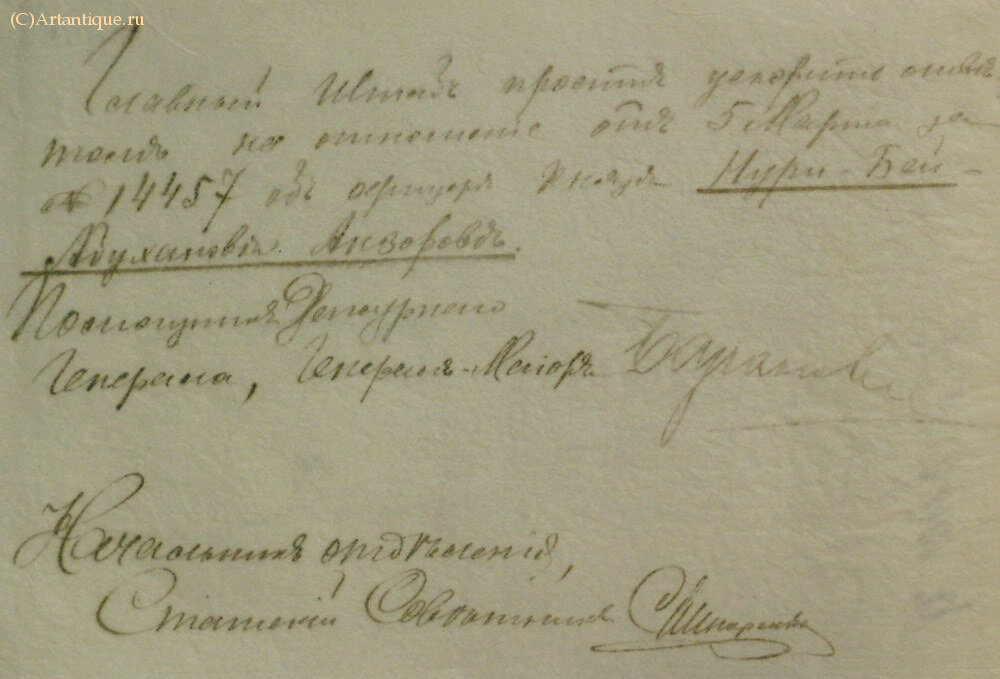 (C)Artantique.ru
Главный Штабъ проситъ ускорить отвѣ
томъ на отношеніе отъ 5 Марта за
№ 14457 объ офицерѣ Князѣ Нури-Бей-
Абухановѣ Анзоровѣ.
Помощникъ Дежурнаго
Генерала, Генералъ-Маіоръ
Начальникъ отдѣленія,
Статскій Совѣтникъ